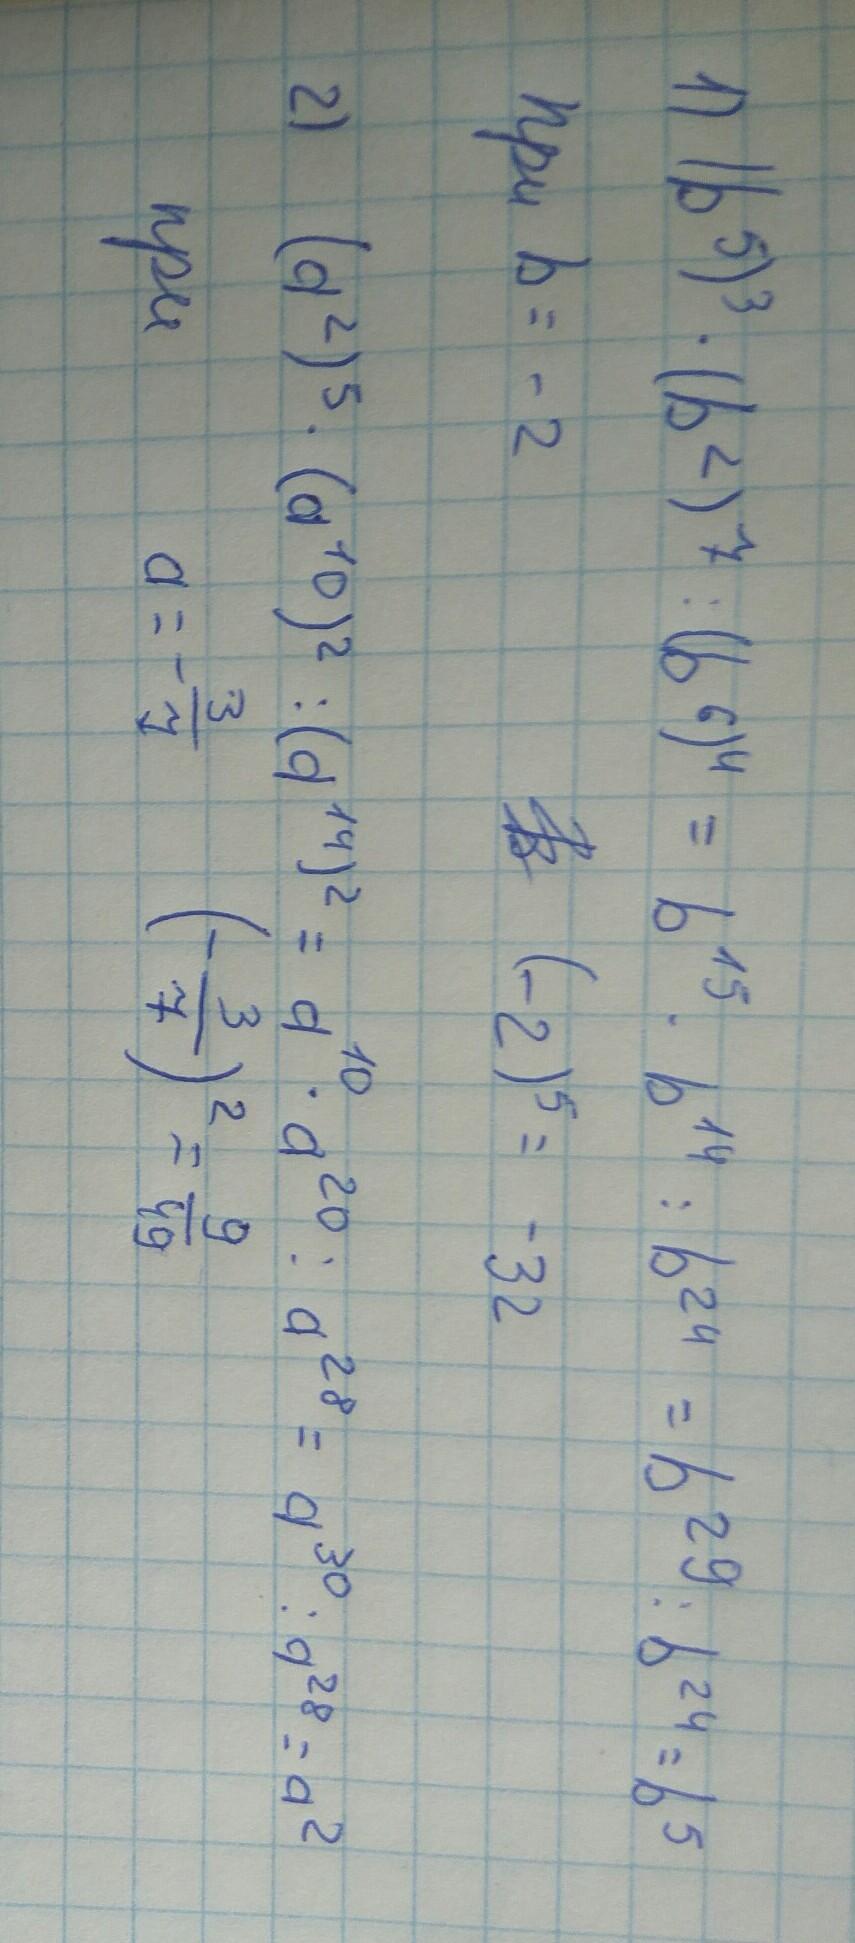 1) (b⁵)³ · (b²)⁷ : (b⁶)⁴ = b¹⁵ · b¹⁴ : b²⁴ = b²⁹ : b²⁴ = b⁵
при b = -2 (-2)⁵ = -32
2) (a²)⁵ · (a¹⁰)² : (a¹⁴)² = a¹⁰ · a²⁰ : a²⁸ = a³⁰ : a²⁸ = a²
при a = -3/7 (-3/7)² = 9/49